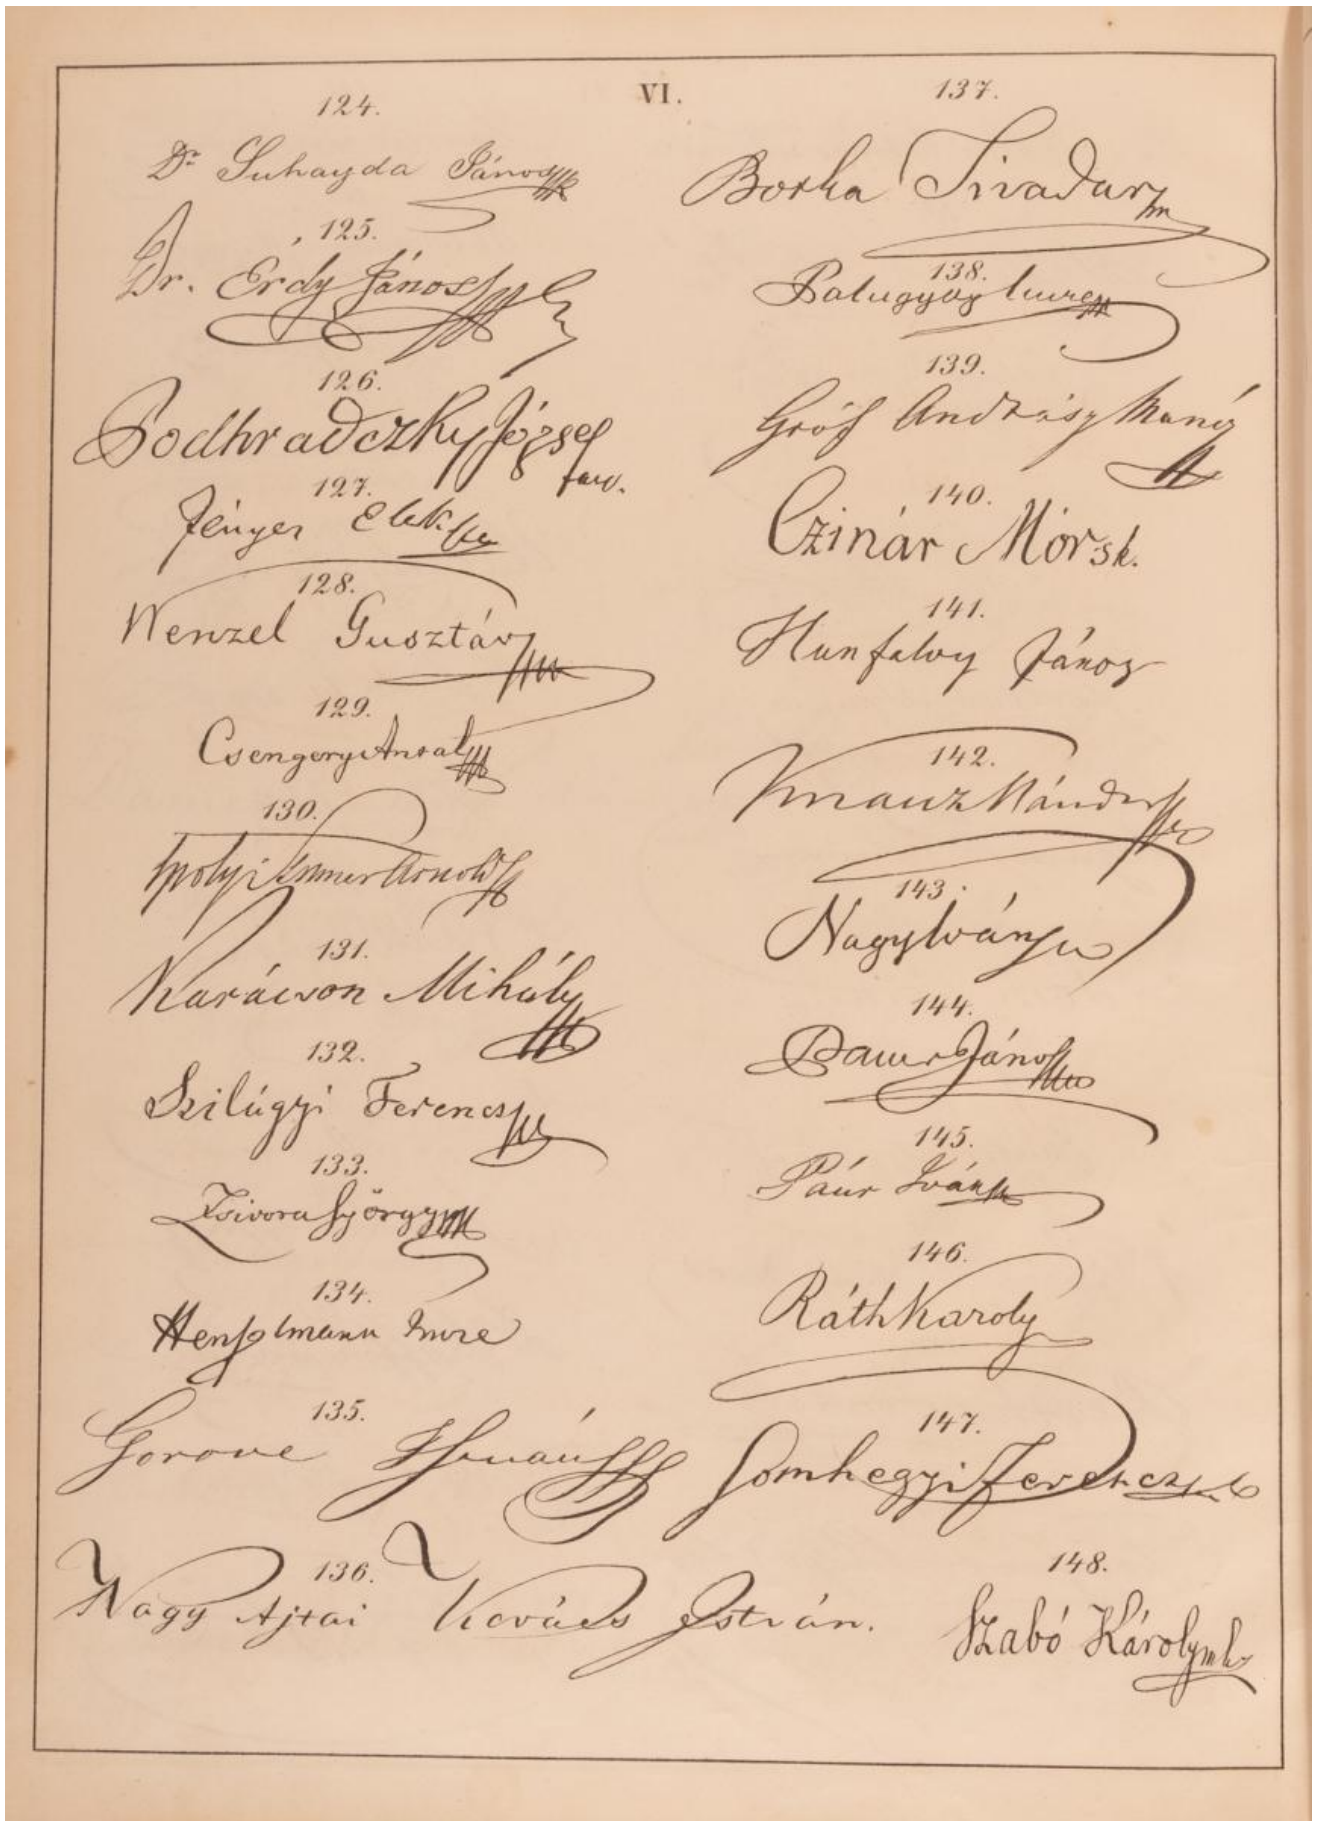 VI.
124.
Dr Suhayda János
125.
Dr. Érdy János
126.
Podhradczky József
127.
Fényes Elek
128.
Wenzel Gusztáv
129.
Csengery Antal
130.
Ipolyi Stummer Arnold
131.
Karácson Mihály
132.
Szilágyi Ferencz
133.
Zsivora György
134.
Henszlmann Imre
135.
Gorove István
136.
Nagy Ajtai Kovács István.
137.
Botka Tivadar
138.
Palugyay Imre
139.
Gróf Andrásy Manó
140.
Czinár Mór sk.
141.
Hunfalvy János
142.
Knauz Nándor
143.
Nagy Iván
144.
Pauer János
145.
Páur Iván
146.
Ráth Karoly
147.
Somhegyi Ferencz
148.
Szabó Károly mk